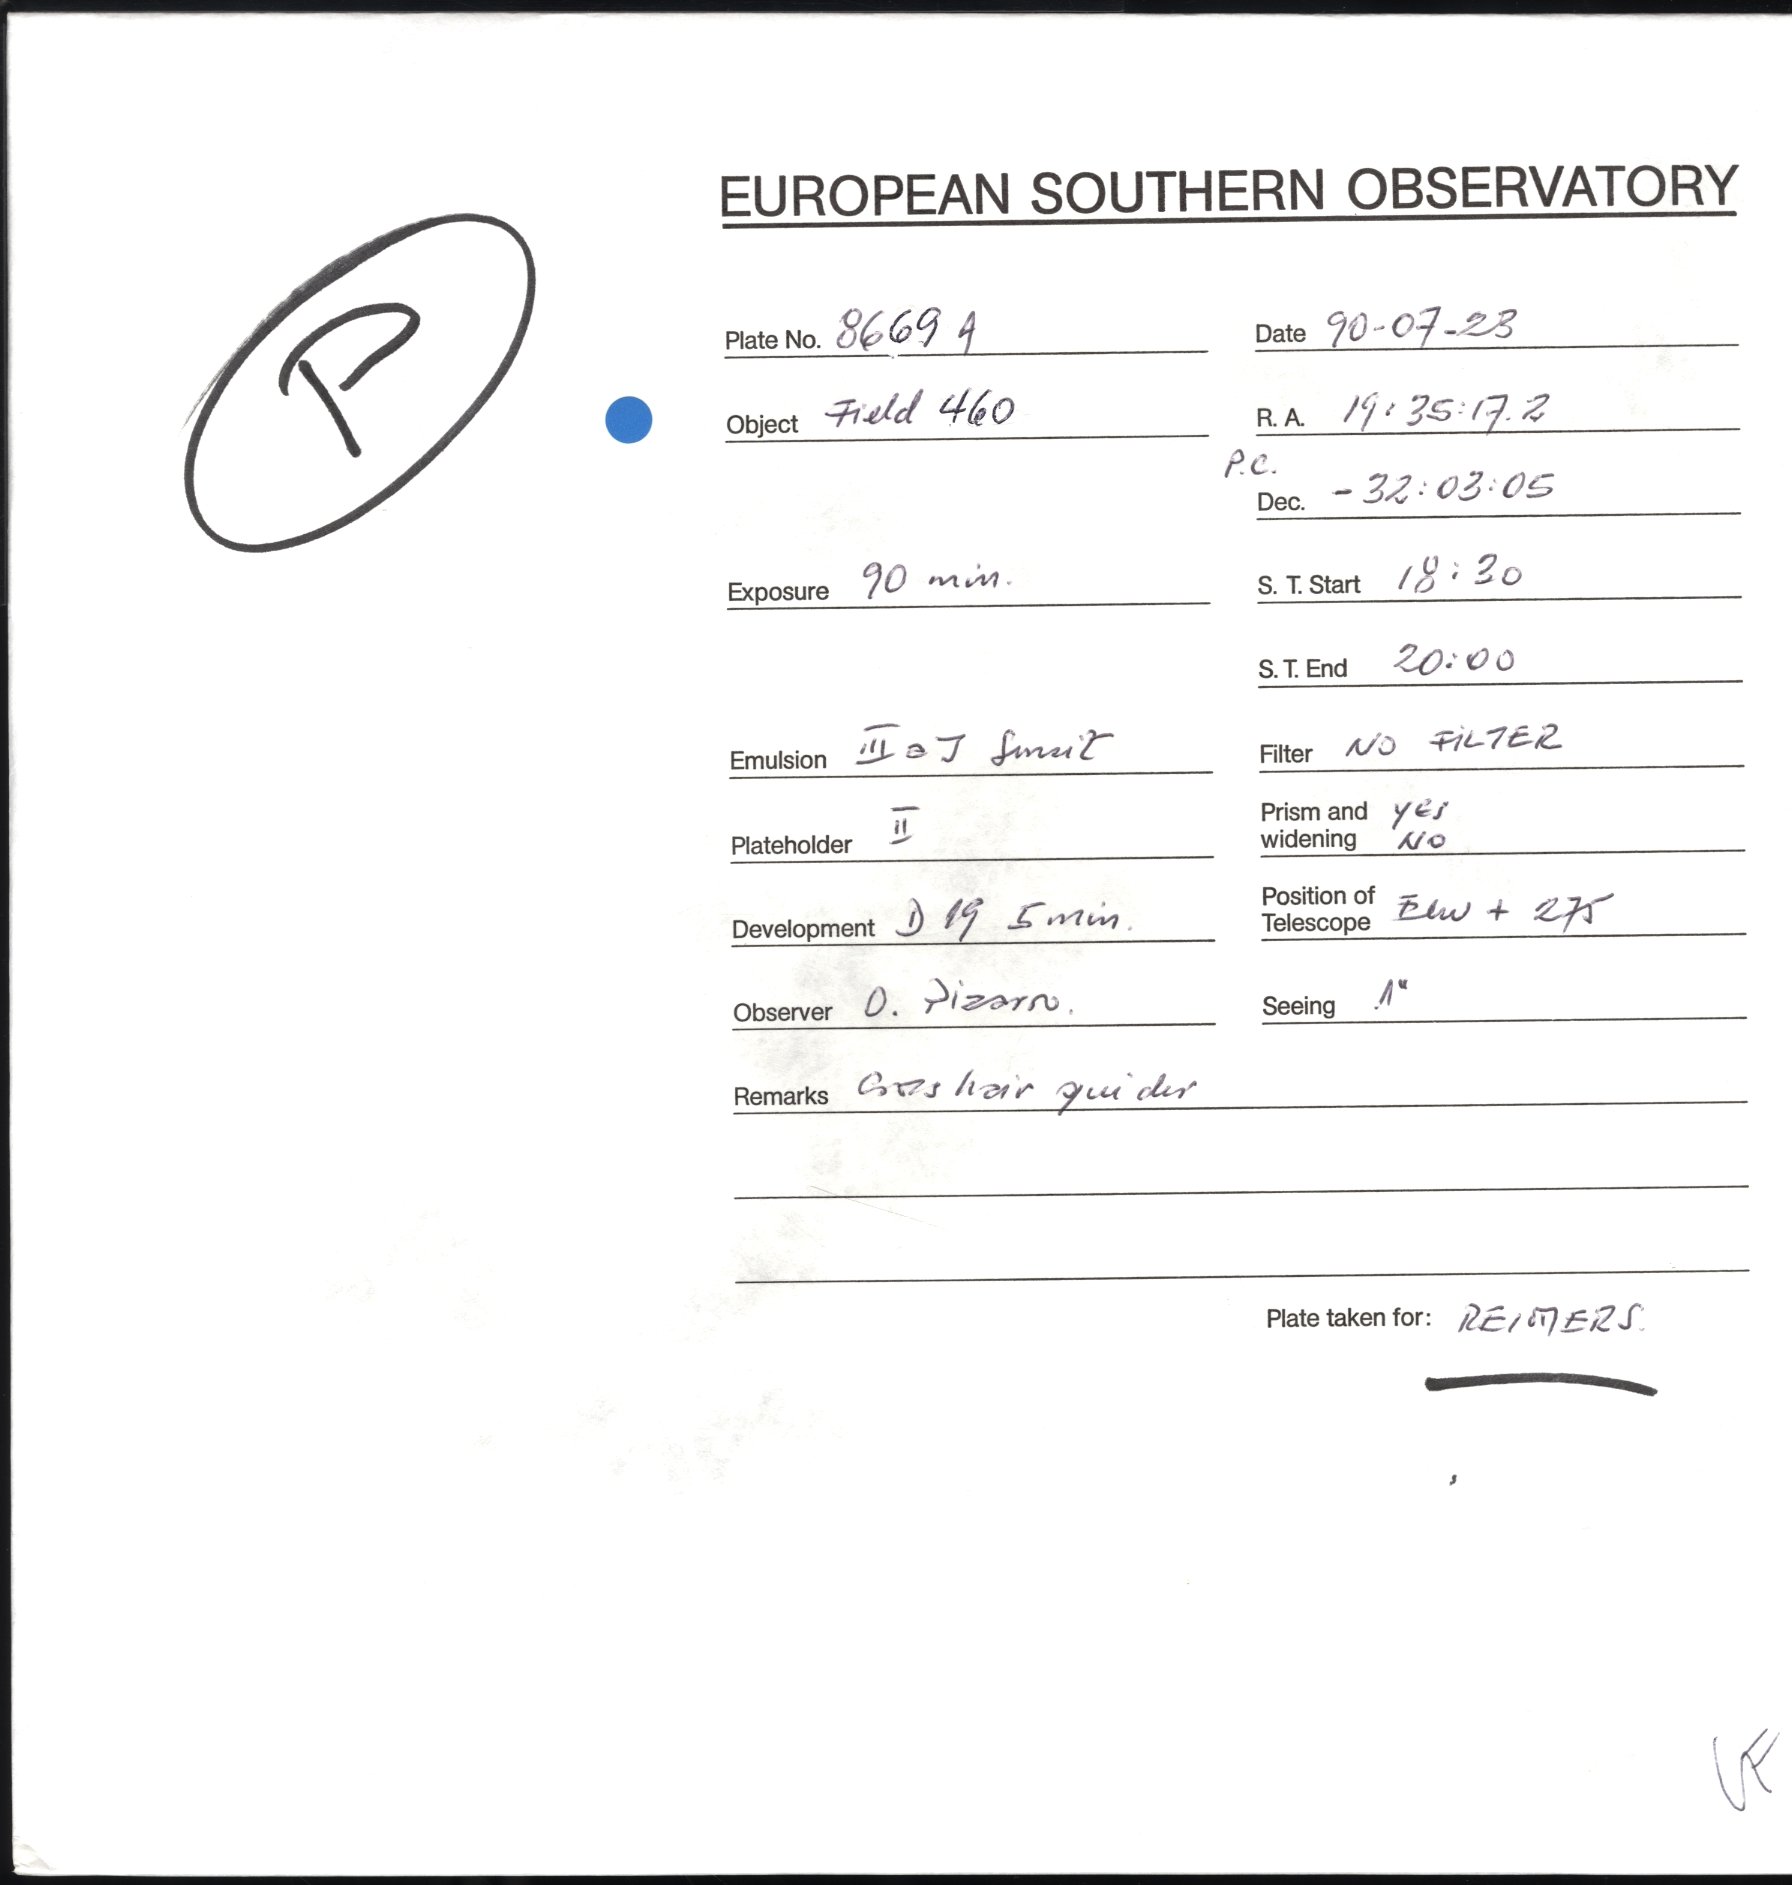 EUROPEAN SOUTHERN OBSERVATORY
P
Plate No. 8669 A
Date 90-07-23
Object Field 460
R. A. 19:35:17.2
P.C.
Dec. -32:03:05
Exposure 90 min.
S. T. Start 18:30
S. T. End 20:00
Emulsion III a J
Filter NO FILTER
Plateholder II
Prism and yes
widening NO
Development D 19 5 min.
Position of
Telescope + 275
Observer O. Pizarro.
Seeing 1"
Remarks Cross hair guider
Plate taken for: REIMERS.